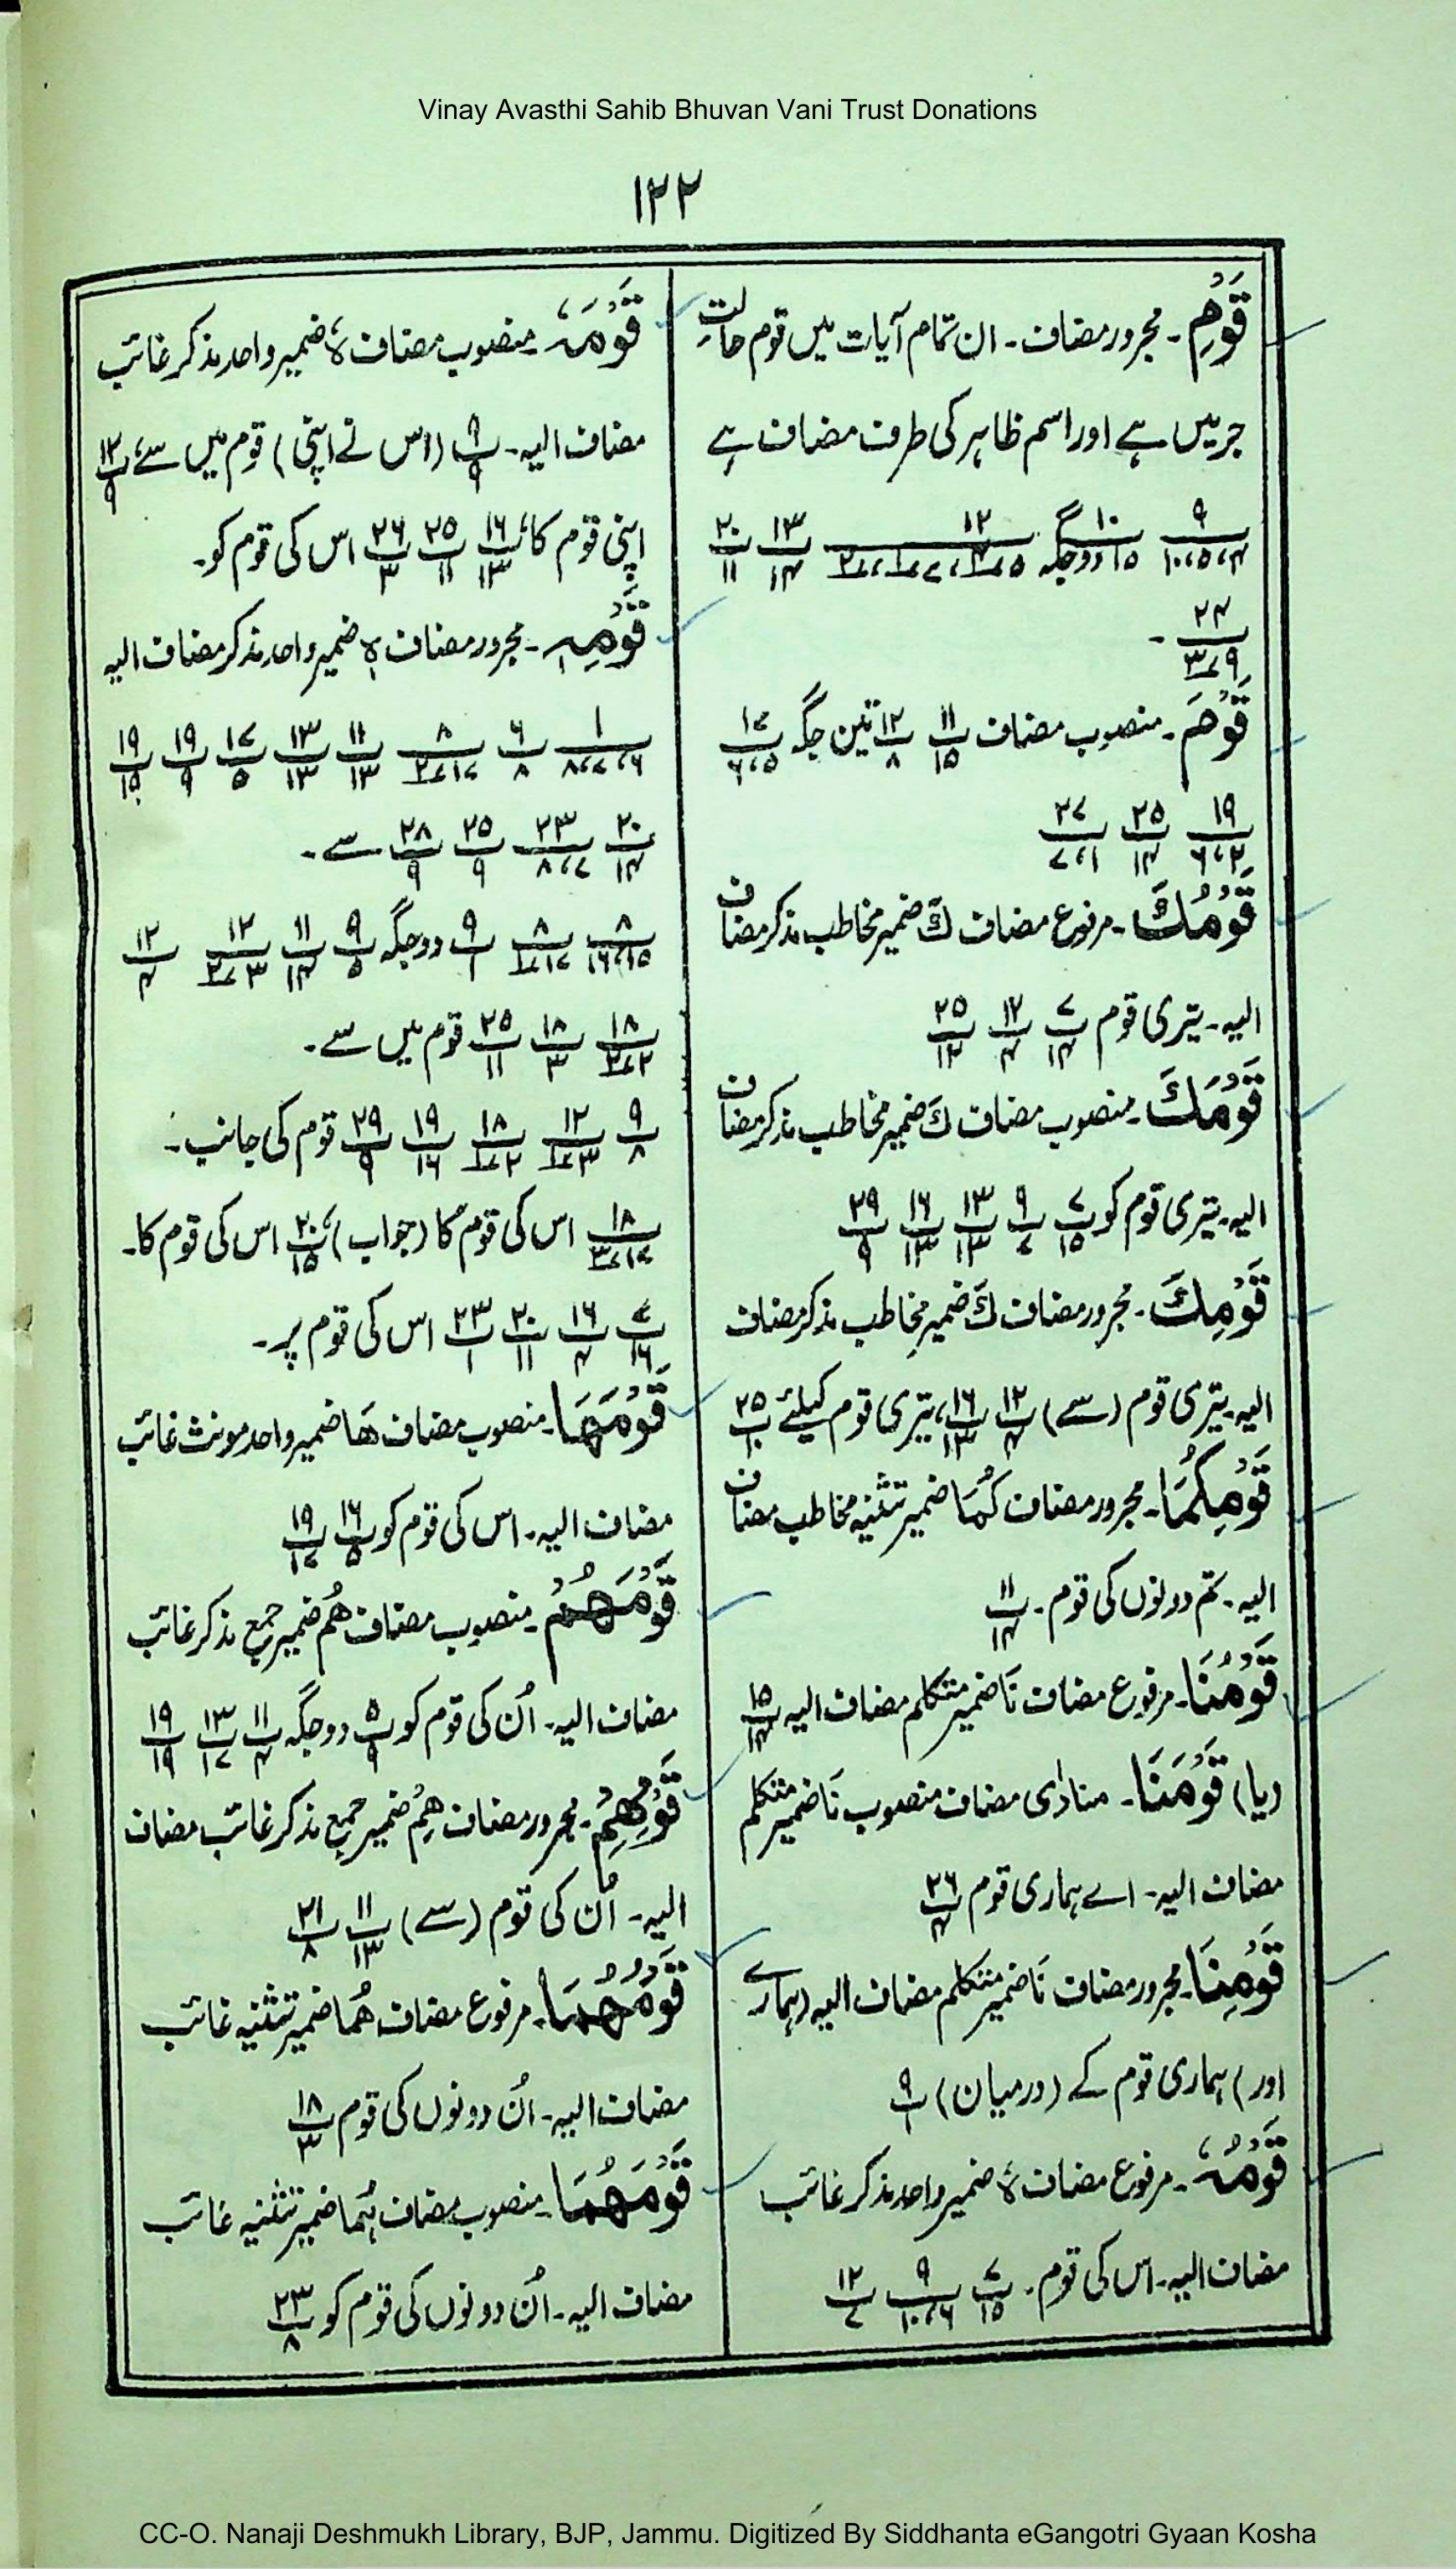 Vinay Avasthi Sahib Bhuvan Vani Trust Donations
۱۲۲
قَوْمِ۔ مجرور مضاف۔ ان تمام آیات میں قوم حالتِ
جر میں ہے اور اسم ظاہر کی طرف مضاف ہے
۹/۴،۵،۱۰ ۱۰/۱۵ دوجگہ ۱۲/ ۱۳/۱۴ ۲۰/۱۱
۲۴/۹،۳ ۔
قَوْمَ۔ منصوب مضاف ۱۱/۱۵ ۱۲/۸ تین جگہ ۱۷/۵،۶
۱۹/۲،۶ ۲۵/۱۴ ۲۷/۱،۷
قَوْمُكَ۔ مرفوع مضاف كَ ضمیر مخاطب مذکر مضاف
الیہ۔ تیری قوم ۷/۱۴ ۱۲/۴ ۲۵/۱۲
قَوْمَكَ۔ منصوب مضاف كَ ضمیر مخاطب مذکر مضاف
الیہ۔ تیری قوم کو ۷/۱۵ ۹/۷ ۱۳/۱۳ ۱۶/۱۳ ۲۹/۹
قَوْمِكَ۔ مجرور مضاف كَ ضمیر مخاطب مذکر مضاف
الیہ۔ تیری قوم (سے) ۱۲/۴ ۱۶/۱۳، تیری قوم کیلئے ۲۵/۱۰
قَوْمِكُمَا۔ مجرور مضاف كُمَا ضمیر تثنیہ مخاطب مضاف
الیہ۔ تم دونوں کی قوم۔ ۱۱/۱۴
قَوْمُنَا۔ مرفوع مضاف نَا ضمیر متکلم مضاف الیہ ۱۵/۱۴
(یا) قَوْمَنَا۔ منادٰی مضاف منصوب نَا ضمیر متکلم
مضاف الیہ۔ اے ہماری قوم ۲۶/۴
قَوْمِنَا۔ مجرور مضاف نَا ضمیر متکلم مضاف الیہ (ہمارے
اور) ہماری قوم کے (درمیان) ۹/۱
قَوْمُهٗ۔ مرفوع مضاف هٗ ضمیر واحد مذکر غائب
مضاف الیہ۔ اس کی قوم۔ ۷/۱۵ ۹/۶،۱۰ ۱۲/۷
قَوْمَهٗ۔ منصوب مضاف هٗ ضمیر واحد مذکر غائب
مضاف الیہ۔ ۹/۹ (اس نے اپنی) قوم میں سے، ۱۳/۹
اپنی قوم کا، ۱۶/۱۳ ۲۵/۱۱ ۲۶/۳ اس کی قوم کو۔
قَوْمِهٖ۔ مجرور مضاف هٖ ضمیر واحد مذکر مضاف الیہ
۱/۶،۷،۸ ۶/۸ ۸/۱۷،۲ ۱۱/۱۳ ۱۳/۱۳ ۱۷/۵ ۱۹/۹ ۱۹/۱۵
۲۰/۱۴ ۲۳/۷،۸ ۲۵/۹ ۲۸/۹ سے۔
۸/۱۵،۱۶ ۸/۱۷،۱ ۹/۱ دوجگہ ۹/۵ ۱۱/۱۴ ۱۲/۳،۲ ۱۲/۴
۱۸/۲،۲ ۱۸/۳ ۲۵/۱۱ قوم میں سے۔
۹/۸ ۱۲/۳،۱ ۱۸/۲،۱ ۱۹/۱۶ ۲۹/۹ قوم کی جانب۔
۱۸/۱۷،۳ اس کی قوم کا (جواب)، ۲۰/۱۵ اس کی قوم کا۔
۷/۱۶ ۱۶/۴ ۲۰/۱۱ ۲۳/۱ اس کی قوم پر۔
قَوْمَهَا۔ منصوب مضاف هَا ضمیر واحد مونث غائب
مضاف الیہ۔ اس کی قوم کو ۱۶/۵ ۱۹/۱۷
قَوْمَهُمْ۔ منصوب مضاف هُم ضمیر جمع مذکر غائب
مضاف الیہ۔ اُن کی قوم کو ۵/۹ دوجگہ ۱۱/۴ ۱۳/۱۷ ۱۹/۱۹
قَوْمِهِمْ۔ مجرور مضاف هِمْ ضمیر جمع مذکر غائب مضاف
الیہ۔ اُن کی قوم (سے) ۱۱/۱۳ ۲۱/۸
قَوْمُهُمَا۔ مرفوع مضاف هُمَا ضمیر تثنیہ غائب
مضاف الیہ۔ اُن دونوں کی قوم ۱۸/۳
قَوْمَهُمَا۔ منصوب مضاف هُمَا ضمیر تثنیہ غائب
مضاف الیہ۔ اُن دونوں کی قوم کو ۲۳/۸
CC-O. Nanaji Deshmukh Library, BJP, Jammu. Digitized By Siddhanta eGangotri Gyaan Kosha